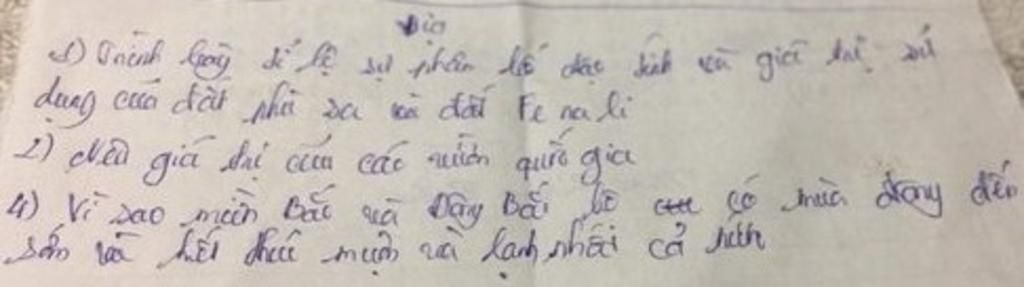 Địa
1) Trình bày tỉ lệ sự phân bố đặc tính và giá trị sử
dụng của đất phù sa và đất Fe ra lit
2) Nêu giá trị của các vườn quốc gia
4) Vì sao miền Bắc và Đông Bắc Bộ có mùa đông đến
sớm và kết thúc muộn và lạnh nhất cả nước